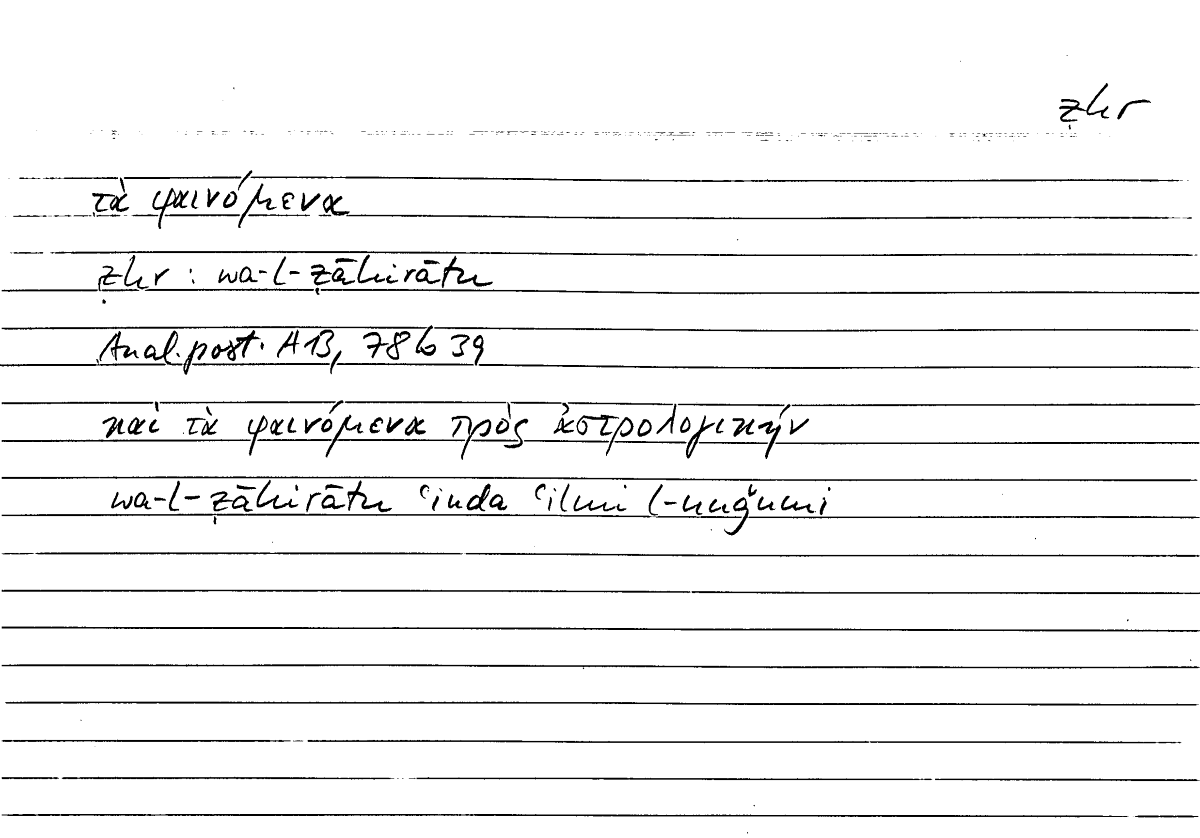 ẓhr
τὰ φαινόμενα
ẓhr : wa-l-ẓāhirātu
Anal. post. A 13, 78 b 39
καὶ τὰ φαινόμενα πρὸς ἀστρολογικήν
wa-l-ẓāhirātu ʿinda ʿilmi l-nuǧūmi